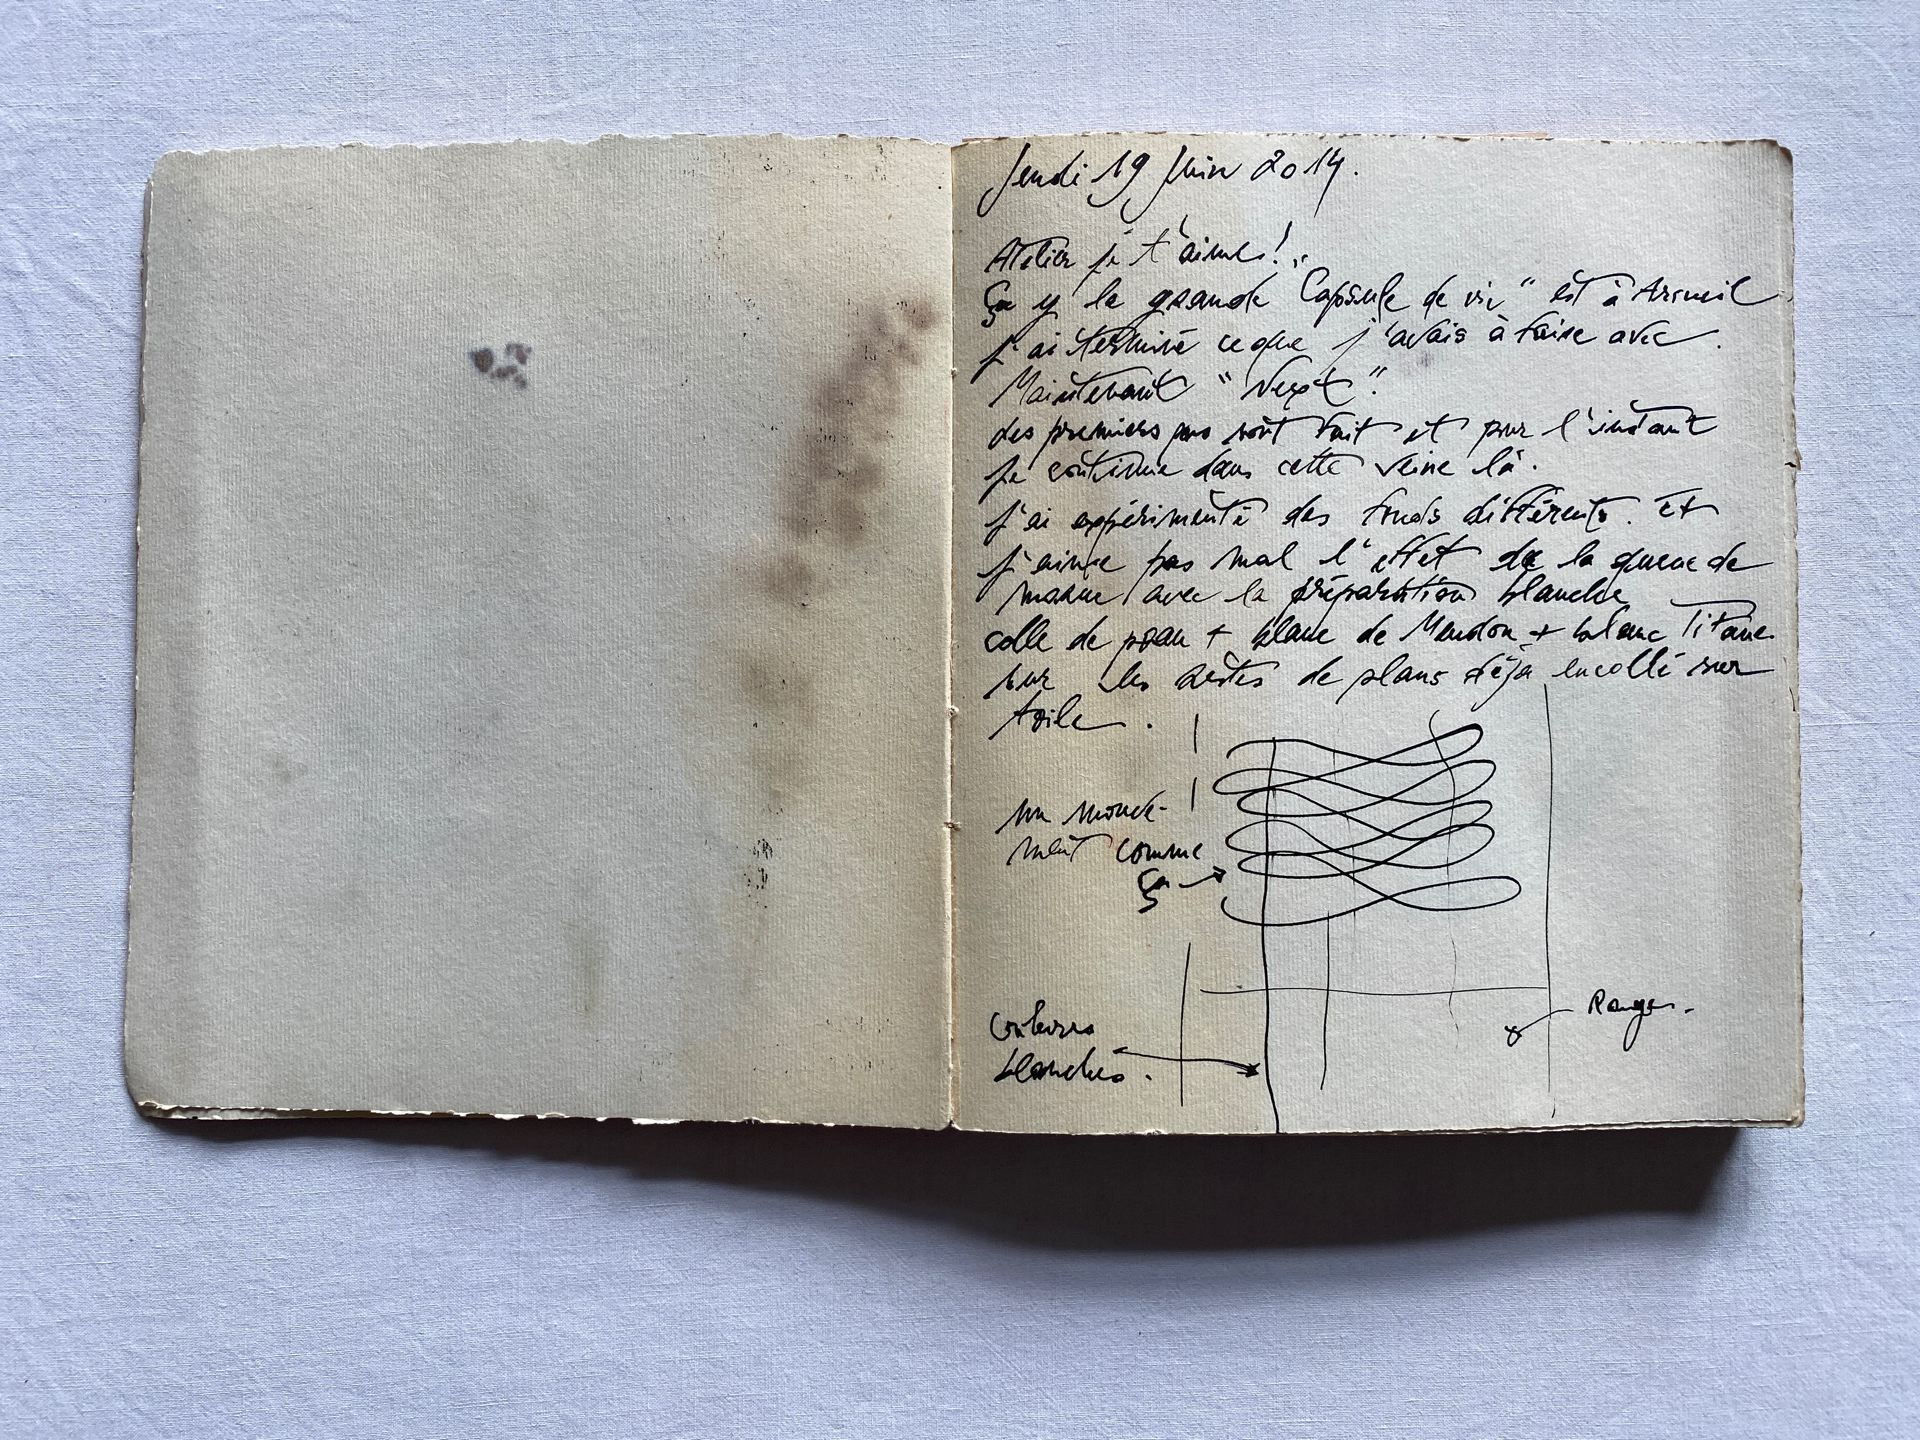 Jeudi 19 Juin 2014.
Atelier je t'aime!
Ça y la grande "Capsule de vie" est à Arcueil
j'ai terminé ce que j'avais à faire avec.
Maintenant "Next".
des premiers pas sont fait et pour l'instant
je continue dans cette veine là.
j'ai expérimenté des fonds différents. Et
j'aime pas mal l'effet de la queue de
morue avec la préparation blanche
colle de peau + blanc de Meudon + blanc Titane
sur les restes de plans déjà encollé sur
toile.
un mouve-
ment comme
ça
blanches.